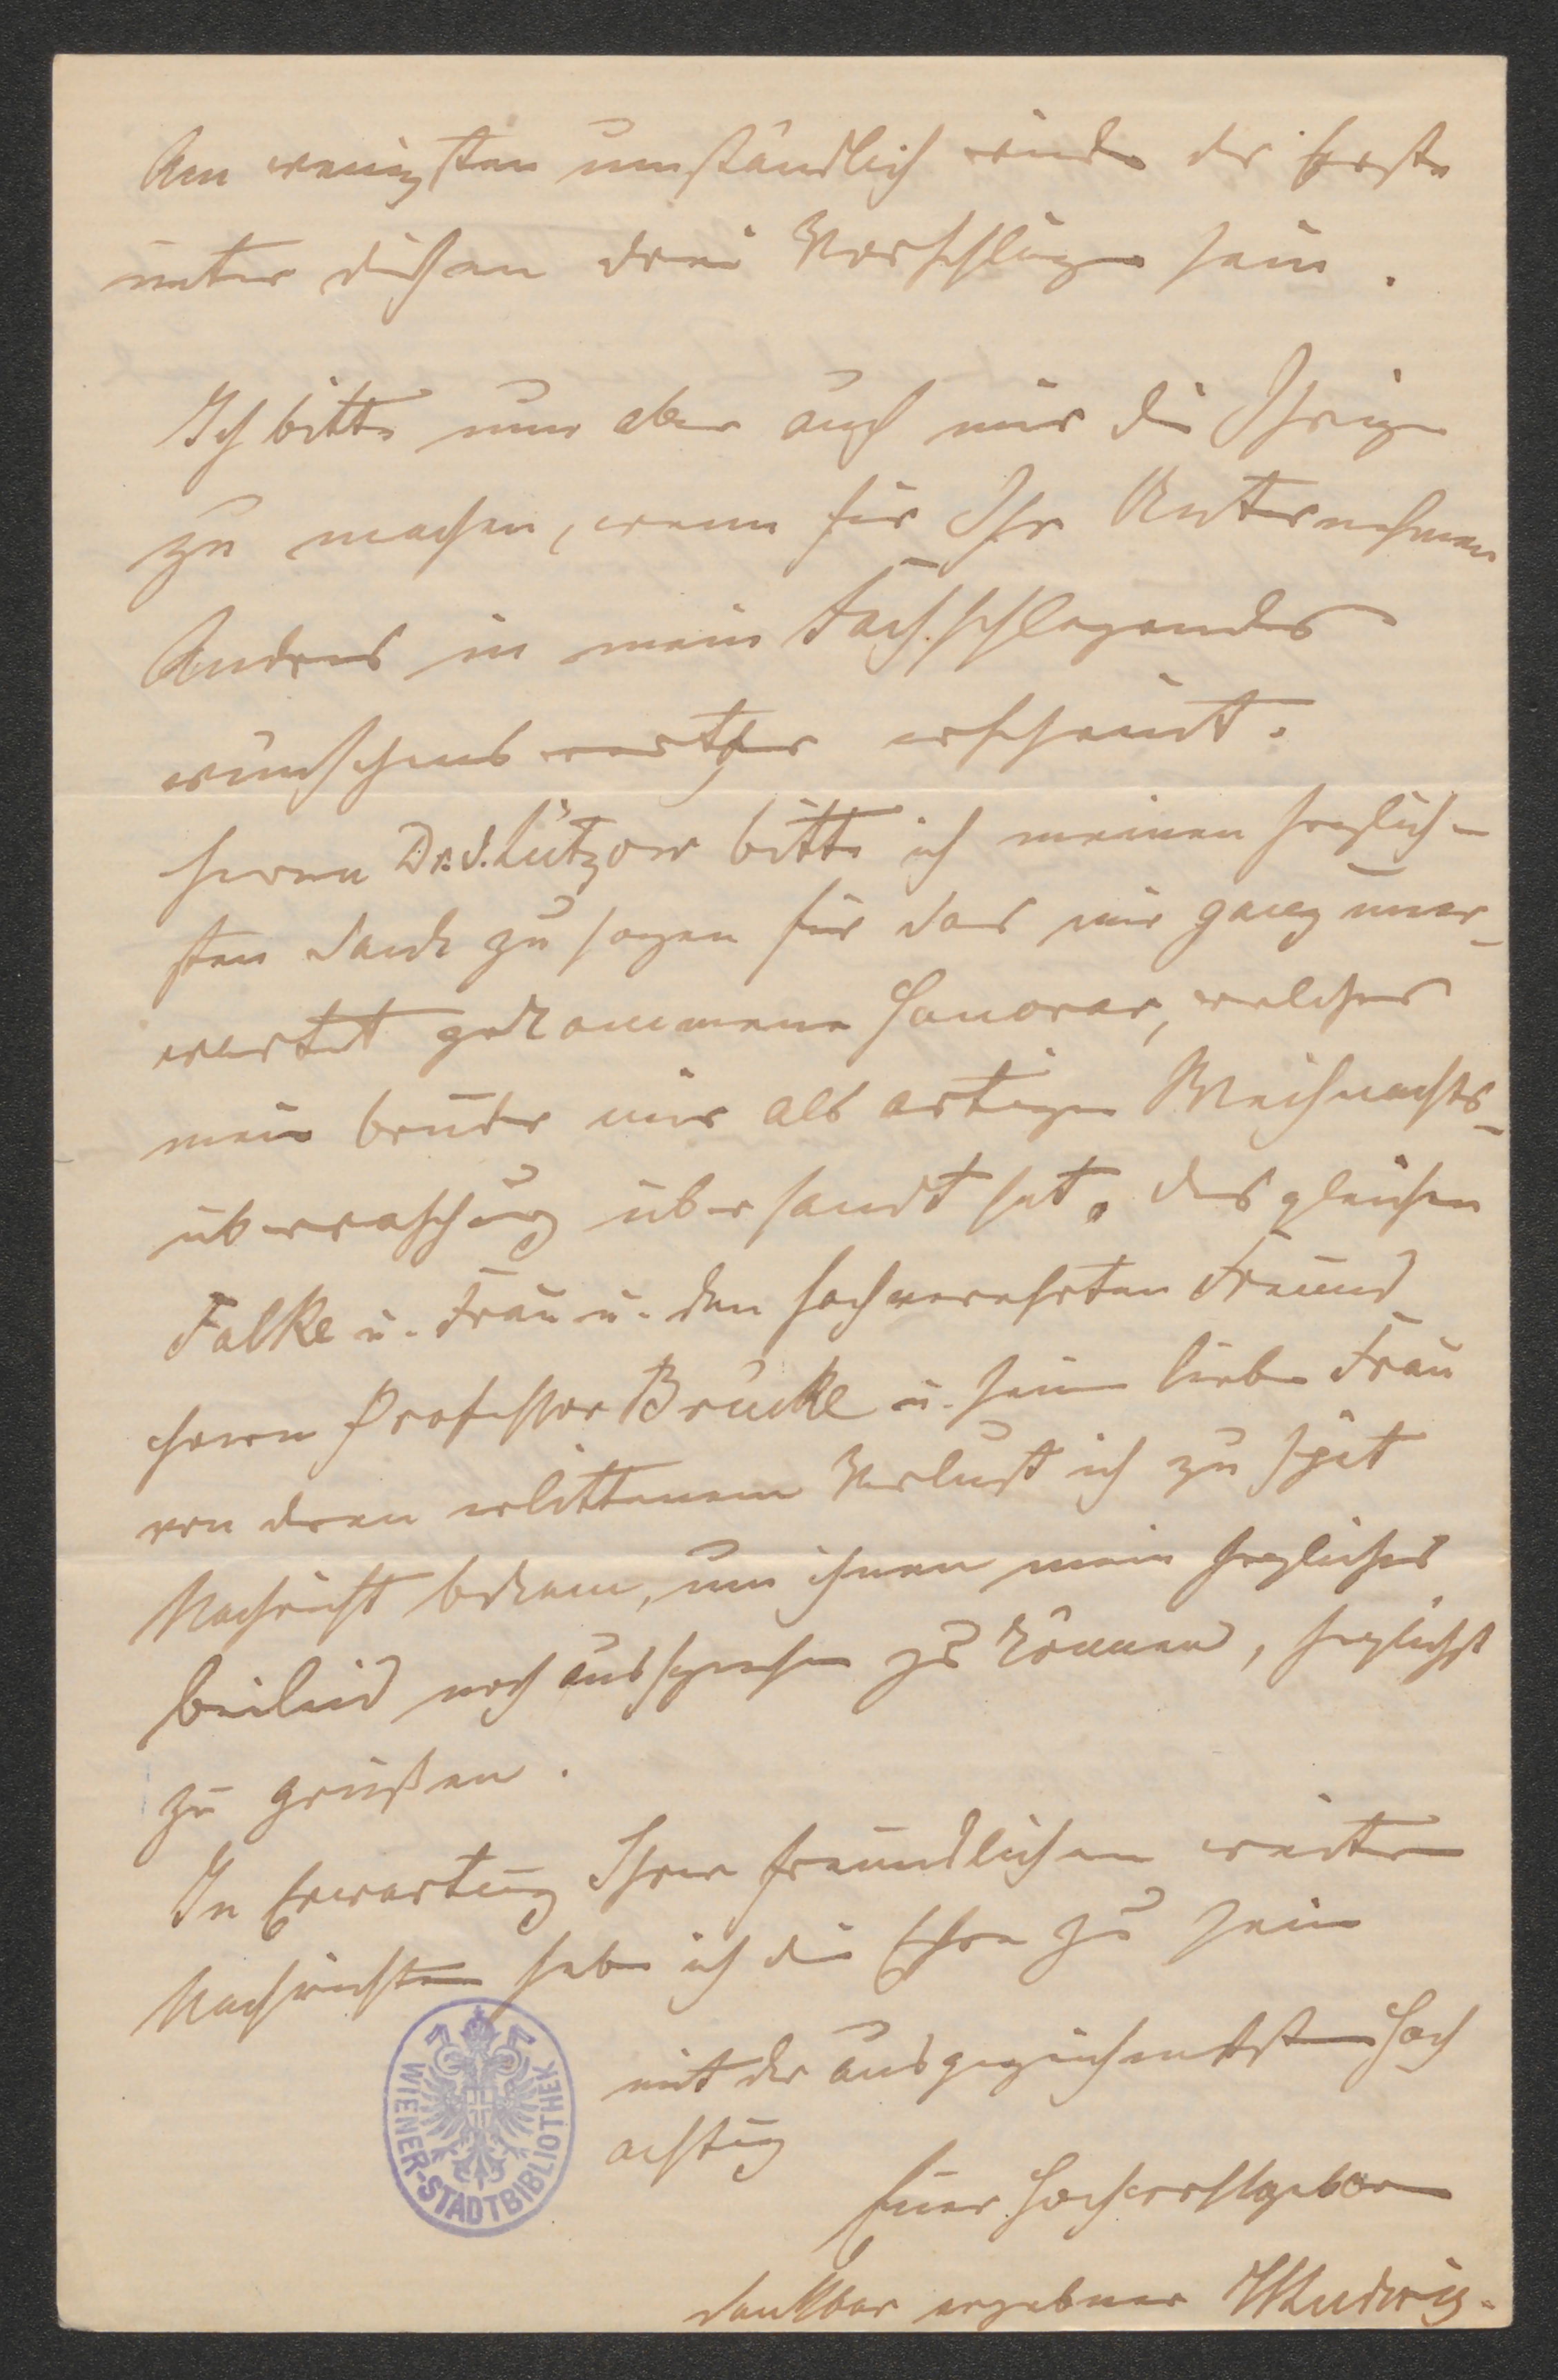 Am wenigsten umständlich würde der Erste
unter diesen drei Vorschlägen sein.
Ich bitte nun aber auch mir die Ihrigen
zu machen, wenn für Ihr Unternehmen
Anderes in mein Fach schlagendes
wünschenswerther erscheint.
Herrn Dr. v. Lützow bitte ich meinen herzlich-
sten Dank zu sagen für das mir ganz uner-
wartet gekommene Honorar, welches
mein Bruder mir als artige Weihnachts-
überraschung übersandt hat. Desgleichen
Falke u. Frau u. den hochverehrten Freund
Herrn Professor Brücke u. seine liebe Frau
von deren erlittenem Verlust ich zu spät
Nachricht bekam, um ihnen mein herzliches
Beileid noch aussprechen zu können, herzlichst
zu grüßen.
In Erwartung Ihrer freundlichen weitern
Nachrichten habe ich die Ehre zu sein
mit der ausgezeichnetsten Hoch
achtung
Euer Hochwohlgeboren
dankbar ergebner Ludwig.
WIENER-STADTBIBLIOTHEK